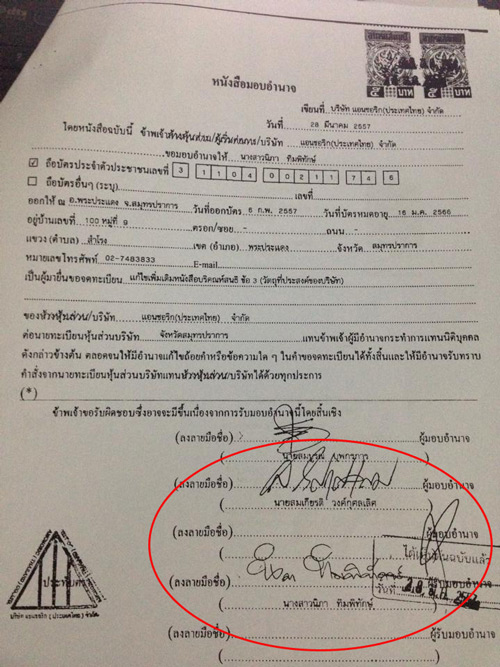 ๕ บาท ๕ บาท
หนังสือมอบอำนาจ
เขียนที่ บริษัท แยนซอริก(ประเทศไทย) จำกัด
วันที่ 28 มีนาคม 2557
โดยหนังสือฉบับนี้ ข้าพเจ้าห้างหุ้นส่วน/ผู้เริ่มก่อการ/บริษัท แยนซอริก(ประเทศไทย) จำกัด
ขอมอบอำนาจให้ นางสาวนิภา ทิมพิทักษ์
☑ ถือบัตรประจำตัวประชาชนเลขที่ 3 1104 00211 74 6
☐ ถือบัตรอื่นๆ (ระบุ) เลขที่
ออกให้ ณ อ.พระประแดง จ.สมุทรปราการ วันที่ออกบัตร 6 ก.พ. 2557 วันที่บัตรหมดอายุ 16 ม.ค. 2566
อยู่บ้านเลขที่ 100 หมู่ที่ 9 ตรอก/ซอย - ถนน -
แขวง (ตำบล) สำโรง เขต (อำเภอ) พระประแดง จังหวัด สมุทรปราการ
หมายเลขโทรศัพท์ 02-7483833 E-mail
เป็นผู้มายื่นขอจดทะเบียน แก้ไขเพิ่มเติมหนังสือบริคณห์สนธิ ข้อ 3 (วัตถุที่ประสงค์ของบริษัท)
ของห้างหุ้นส่วน/บริษัท แยนซอริก(ประเทศไทย) จำกัด
ต่อนายทะเบียนหุ้นส่วนบริษัท จังหวัดสมุทรปราการ แทนข้าพเจ้าผู้มีอำนาจกระทำการแทนนิติบุคคล
ดังกล่าวข้างต้น ตลอดจนให้มีอำนาจแก้ไขถ้อยคำหรือข้อความใด ๆ ในคำขอจดทะเบียนได้ทั้งสิ้นและให้มีอำนาจรับทราบ
คำสั่งจากนายทะเบียนหุ้นส่วนบริษัทแทนห้างหุ้นส่วน/บริษัทได้ด้วยทุกประการ
(*)
ข้าพเจ้าขอรับผิดชอบซึ่งอาจจะมีขึ้นเนื่องจากการรับมอบอำนาจนี้โดยสิ้นเชิง
(ลงลายมือชื่อ) ผู้มอบอำนาจ
(นายสมบูรณ์)
(ลงลายมือชื่อ) ผู้มอบอำนาจ
(นายสมเกียรติ วงค์กุศลเลิศ)
(ลงลายมือชื่อ) ผู้มอบอำนาจ
ได้ ฉบับแล้ว
(ลงลายมือชื่อ) นิภา ทิมพิทักษ์ ผู้รับมอบอำนาจ
วันที่
(นางสาวนิภา ทิมพิทักษ์)
(ลงลายมือชื่อ) ผู้รับมอบอำนาจ
ประทับตรา
บริษัท แยนซอริก (ประเทศไทย) จำกัด